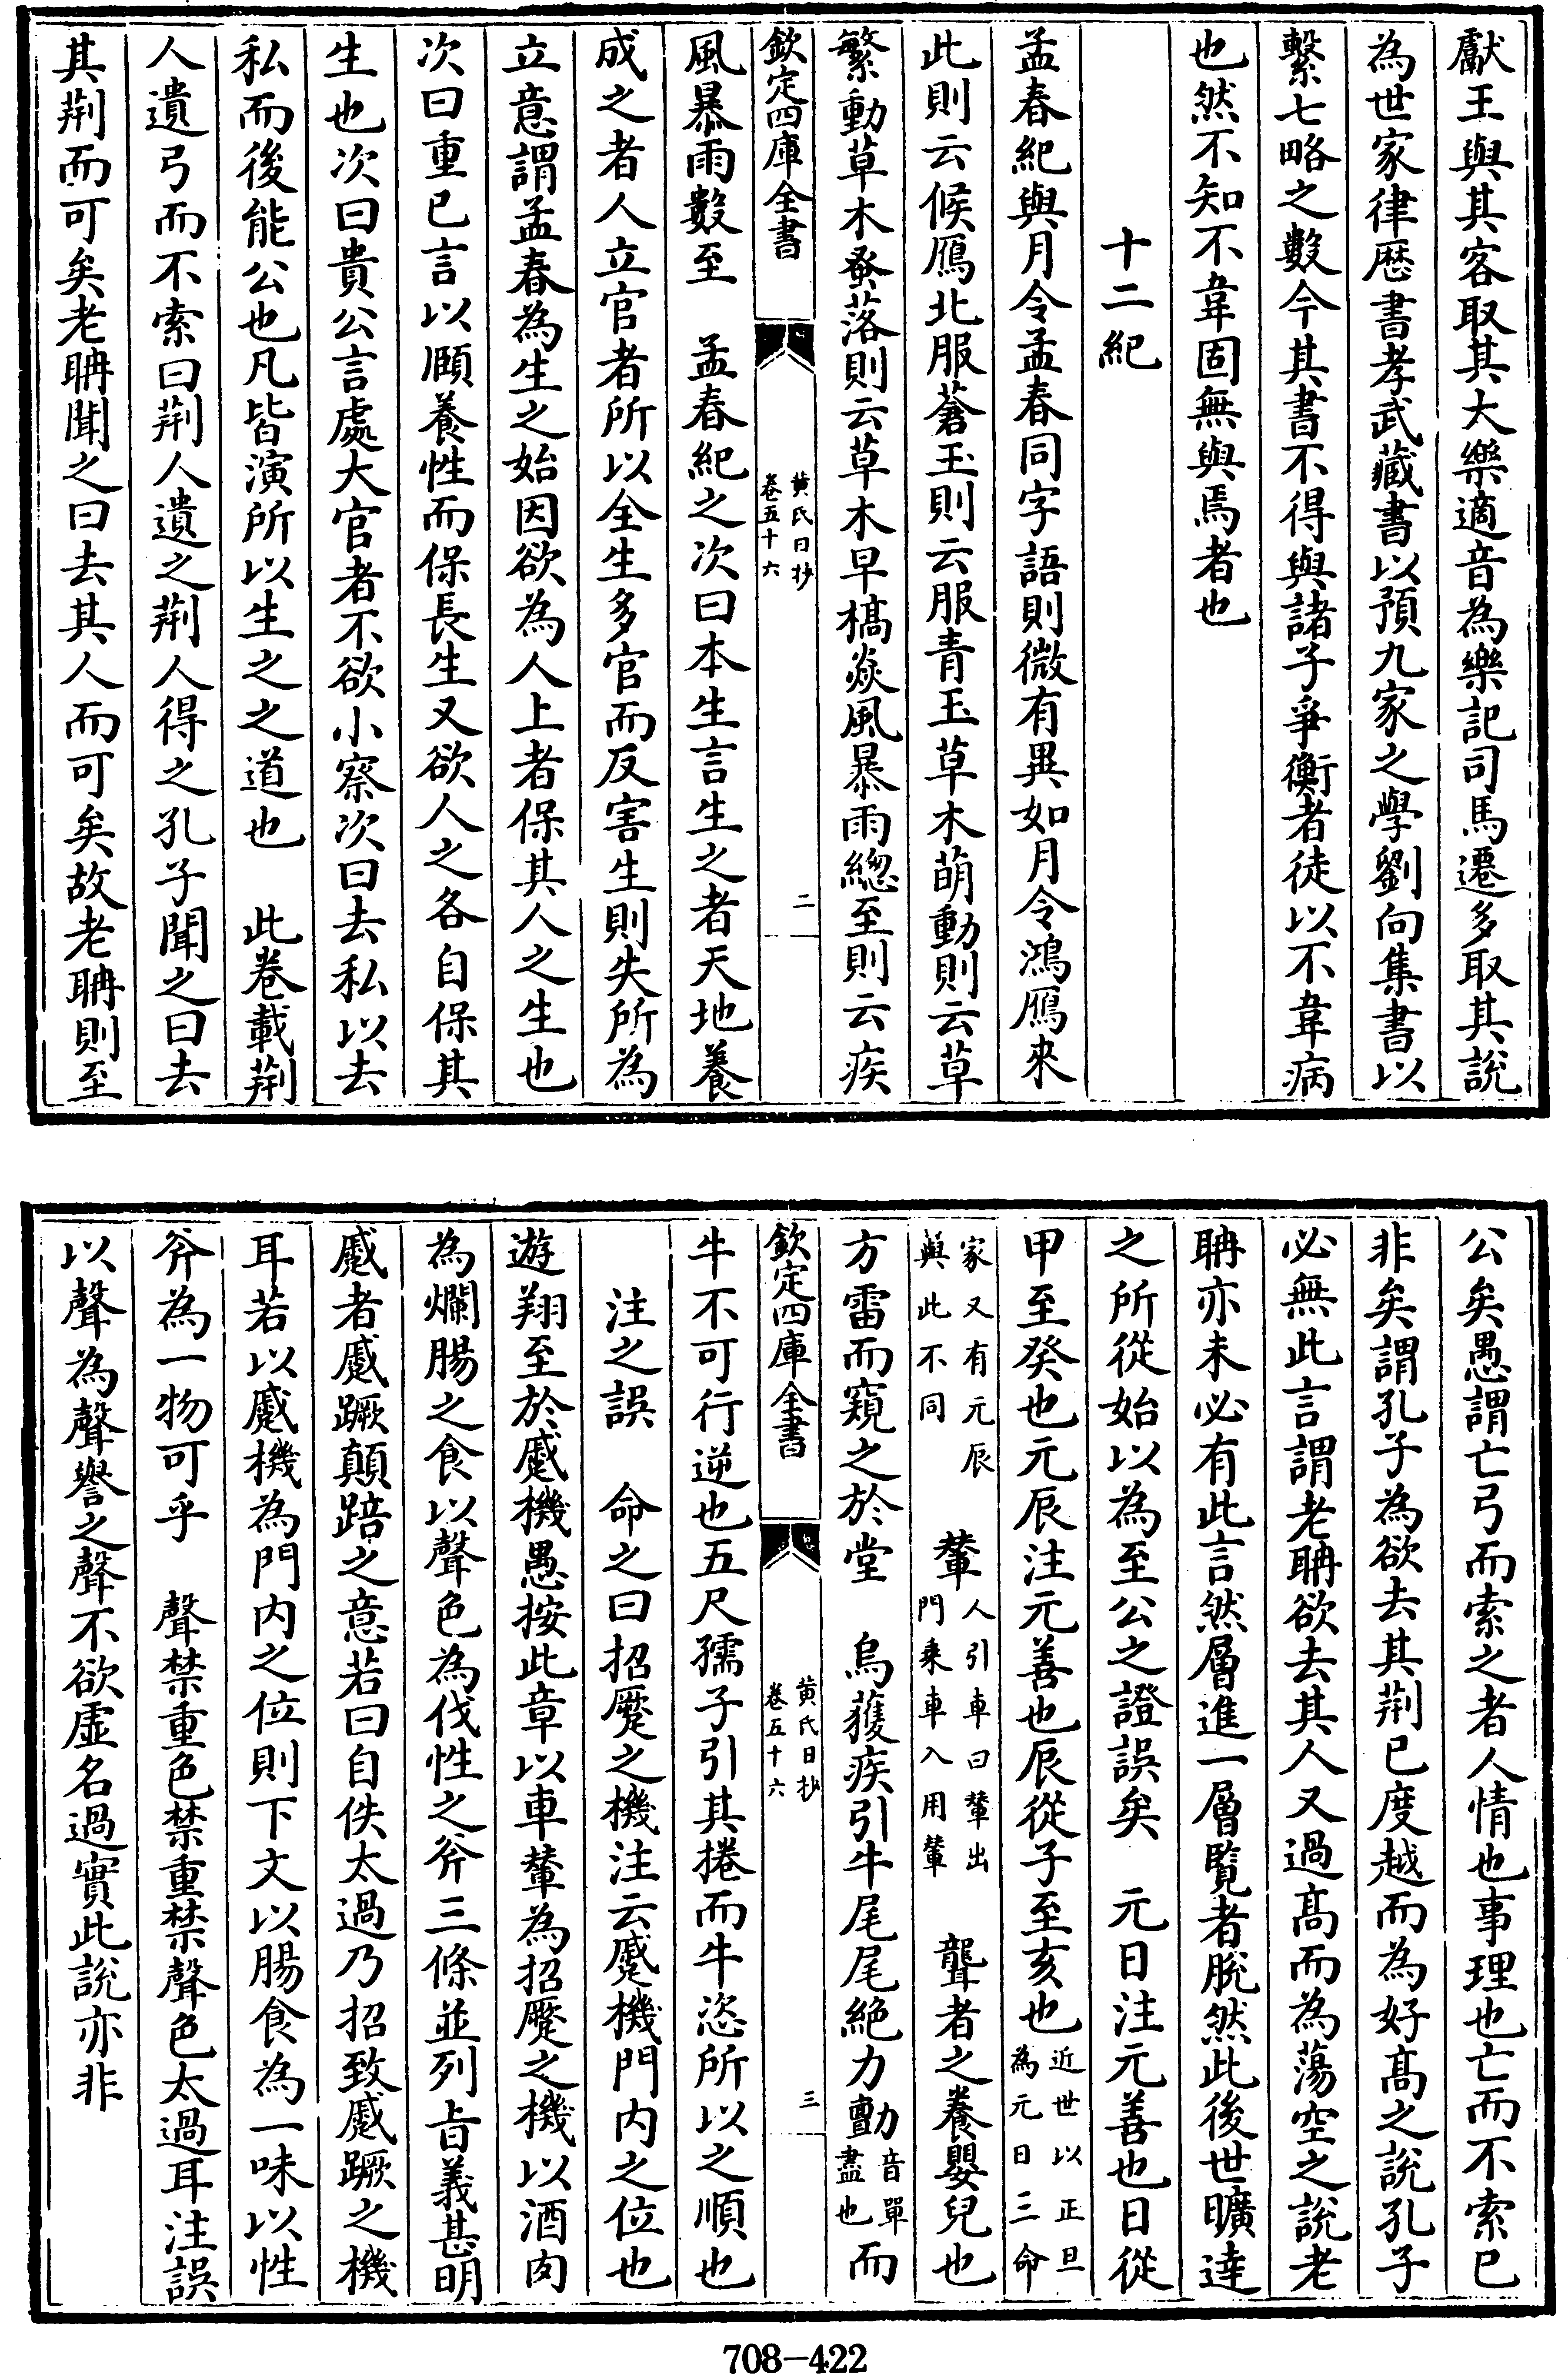 獻王與其客取其太樂適音為樂記司馬遷多取其說
為世家律歴書孝武藏書以預九家之學劉向集書以
繫七略之數今其書不得與諸子爭衡者徒以不韋病
也然不知不韋固無與焉者也
十二紀
孟春紀與月令孟春同字語則微有異如月令鴻鴈來
此則云候鴈北服蒼玉則云服青玉草木萌動則云草
繁動草木蚤落則云草木早槁焱風暴雨總至則云疾
欽定四庫全書
黄氏日抄
卷五十六
二
風暴雨數至　孟春紀之次曰本生言生之者天地養
成之者人立官者所以全生多官而反害生則失所為
立意謂孟春為生之始因欲為人上者保其人之生也
次曰重已言以頤養性而保長生又欲人之各自保其
生也次曰貴公言處大官者不欲小察次曰去私以去
私而後能公也凡皆演所以生之之道也　此巻載荆
人遺弓而不索曰荆人遺之荆人得之孔子聞之曰去
其荆而可矣老聃聞之曰去其人而可矣故老聃則至
公矣愚謂亡弓而索之者人情也事理也亡而不索已
非矣謂孔子為欲去其荆已度越而為好髙之說孔子
必無此言謂老聃欲去其人又過髙而為蕩空之說老
聃亦未必有此言然層進一層覽者脱然此後世曠逹
之所從始以為至公之證誤矣　元日注元善也日從
甲至癸也元辰注元善也辰從子至亥也近世以正旦
為元日三命
家又有元辰
與此不同　輦人引車曰輦出
門乗車入用輦　聾者之養嬰兒也
方雷而窺之於堂　烏獲疾引牛尾尾絶力勯音單
盡也而
欽定四庫全書
黄氏日抄
卷五十六
三
牛不可行逆也五尺孺子引其捲而牛恣所以之順也
注之誤　命之曰招蹷之機注云蹷機門内之位也
遊翔至於蹷機愚按此章以車輦為招蹷之機以酒肉
為爛腸之食以聲色為伐性之斧三條並列㫖義甚明
蹷者蹷蹶顛踣之意若曰自佚太過乃招致蹷蹶之機
耳若以蹷機為門内之位則下文以腸食為一味以性
斧為一物可乎　聲禁重色禁重禁聲色太過耳注誤
以聲為聲譽之聲不欲虚名過實此說亦非
708—422